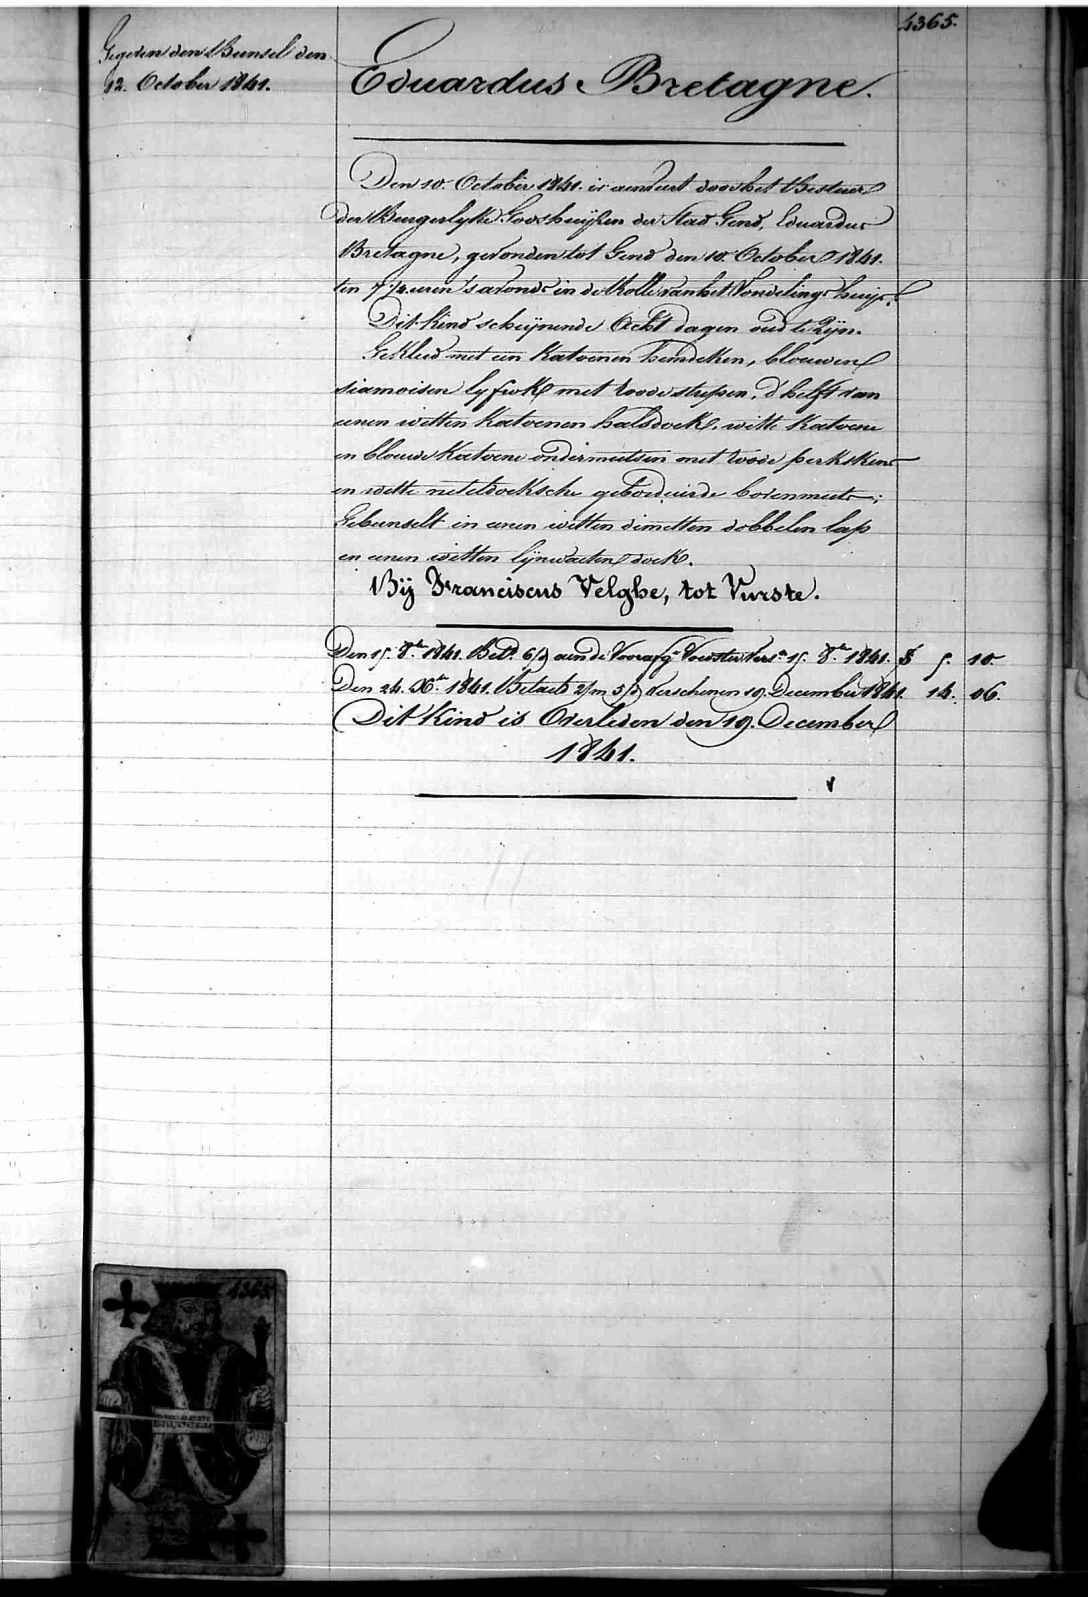 4365.
Gegeven den Bunsel den
12. October 1841.
Eduardus Bretagne.
Den 10. October 1841. is aenveert door het Bestuer
der Burgerlyke Godshuijsen der Stad Gend, Eduardus
Bretagne, gevonden tot Gend den 10. October 1841.
ten 7 ½ uren 's avonds in de Rolle van het Vondelings huijs.
Dit kind schijnende Acht dagen oud te Zijn.
Gekleed met een Katoenen hemdeken, blouwen
siamoisen lyfrok met roode strepen, d'helft van
eenen witten Katoenen halsdoek, witte Katoene
en blouwe Katoene ondermutsen met roode perkskens
en witte neteldoeksche geborduerde bovenmuts;
Gebunselt in eenen witten dimitten dobbelen lap
en eenen witten lijnwaeten doek.
Bij Franciscus Velghe, tot Vurste.
Den 15. 8.^e 1841. Bet.^d 6/d aen de Voorafg.^e Voedster Vers.^n 15. 8.^e 1841. 5. 10.
Den 24. X^e. 1841. Betaelt 2/m 5/d verschenen 19. December 1841. 14. 06.
Dit Kind is Overleden den 19. December
1841.
4365